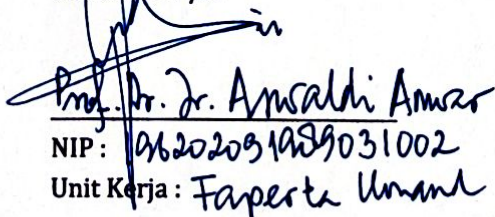 Prof. Dr. Ir. Aswaldi Anwar
NIP : 196202091989031002
Unit Kerja : Faperta Unand